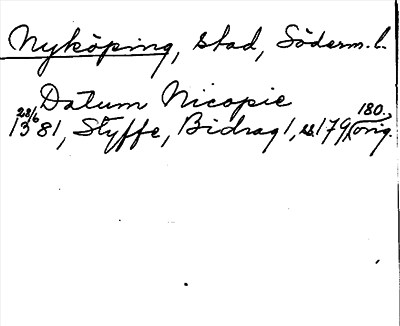 Nyköping, stad, Söderm. l.
Datum Nicopie
28/6 1381, Styffe, Bidrag 1, s. 179, 180, orig.